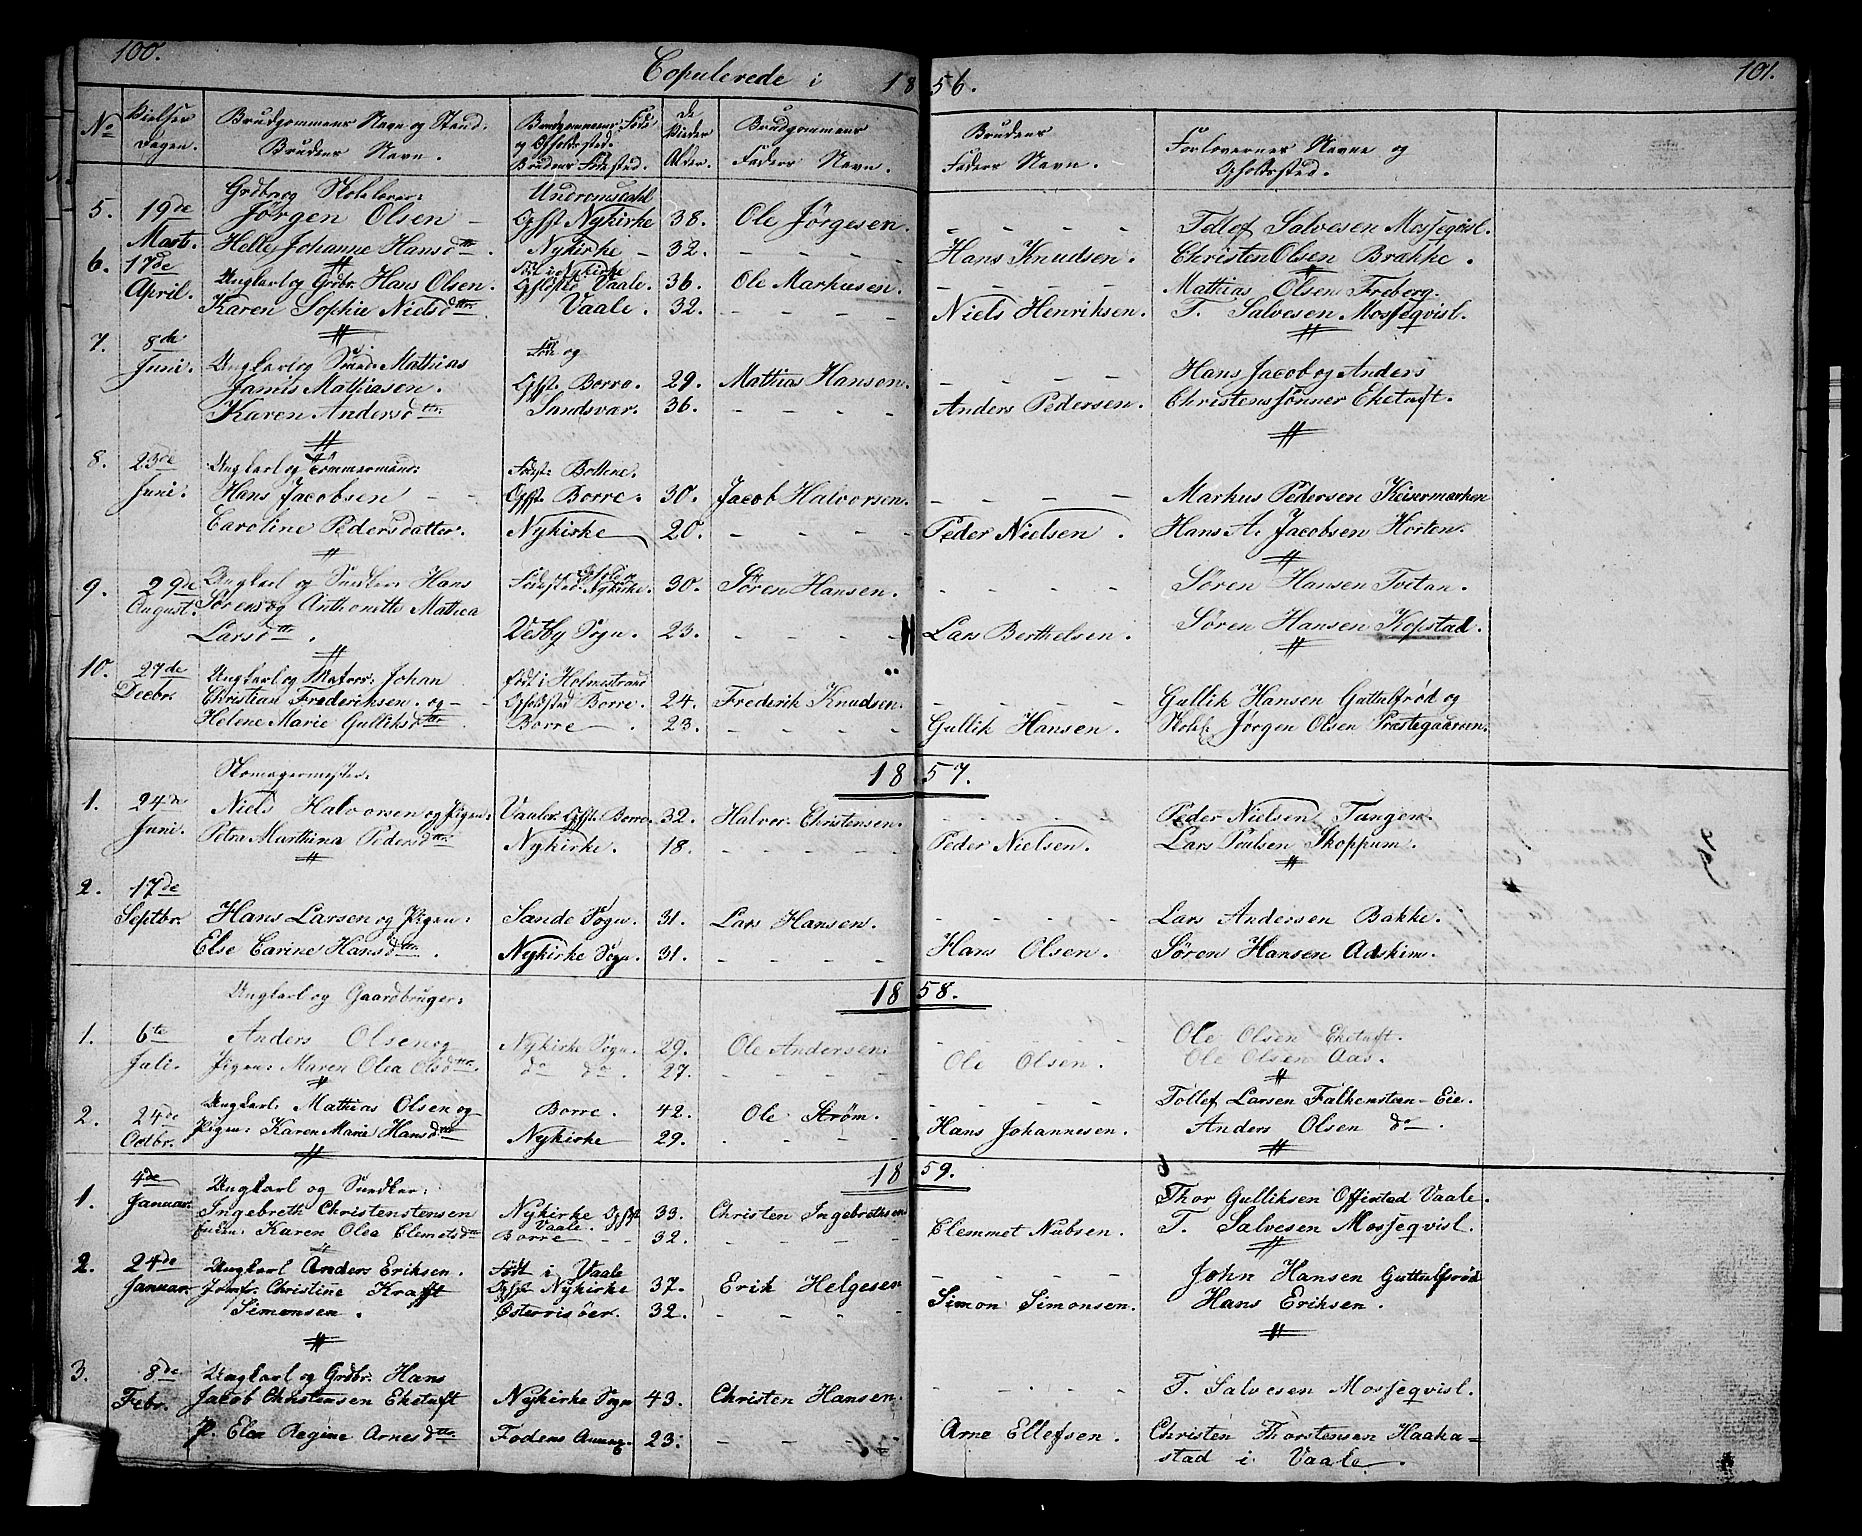 100.
Copulerede i 1856.
101.
No
Vielses Dagen.
Brudgommens Navn og Stand.
Brudens Navn.
Brudgommens Føde og Opholdssted.
Brudens Fødested.
De Viedes Alder.
Brudgommens
Faders Navn.
Brudens
Faders Navn.
Forlovernes Navne og
Opholdssted.
5. 19de Marts.
Grdbr og Skolelærer:
Jørgen Olsen - Opst Nykirke 38. Ole Jørgesen - - - - Tollef Salvesen Mosseqvisl.
Helle Johanne Hansdtr. Nykirke - 32. - - - - Hans Knudsen. Christen Olsen Brække.
6. 17de April.
Ungkarl og Grdbr. Hans Olsen. Født i Nykirke Opholdsted Vaale. 36. Ole Markusen. - - - - Mathias Olsen Freberg.
Karen Sophie Nielsdtr. Vaale. 32. - - - - Niels Henriksen. T. Salvesen Mosseqvisl.
7. 8de Juni.
Ungkarl og Mathias Fød og
Jamis Mathiasen. Opst. Borre. 29. Mathias Hansen. - - - - Hans Jacob og Anders
Karen Andersdtr. Sandsvær. 36. - - - - Anders Pedersen. Christenssønner Eketuft.
8. 23de Juni.
Ungkarl og Tømmermand: Fødst: Bottene.
Hans Jacobsen - - Opst. Borre. 30. Jacob Halvorsen. - - - - Markus Pedersen Keisermarken
Caroline Pedersdatter. Nykirke 20. - - - - Peder Nielsen. Hans A. Jacobsen Horten.
9. 29de August.
Ungkarl og Snedker Hans Fødested Nykirke. 30. Søren Hansen. - - - - Søren Hansen Tveitan.
Sørens og Anthonette Mathea
Larsdtr. Vesby Sogn. 23. - - - - Lars Berthelsen. Søren Hansen Kopstad.
10. 27de Decbr.
Ungkarl og Matros: Johan født i Holmestrand
Christian Frederiksen. og - Opholdsted Borre. 24. Frederik Knudsen. - - - - Gullik Hansen Guttulfrød og
Helene Marie Gulliksdtr. Borre - 23. - - - - Gullik Hansen. Skolel. Jørgen Olsen Præstegaarden.
1857.
Skomagermester:
1. 24de Juni.
Niels Halvorsen og Pigen: Vaaler. Opst. Borre. 32. Halvor Christensen. - - - - Peder Nielsen Tangen.
Petra Marthina Pedersdtr. Nykirke. 18. - - - - Peder Nielsen. Lars Poulsen Skoppum.
2. 17de Septbr.
Hans Larsen og Pigen: Sande Sogn. 31. Lars Hansen. - - - - Lars Andersen Bakke.
Else Carine Hansdtr. Nykirke Sogn. 31. - - - - Hans Olsen. Søren Hansen Adskim.
1858.
Ungkarl og Gaardbruger:
1. 6te Juli.
Anders Olsen og Nykirke Sogn. 29. Ole Andersen. - - - - Ole Olsen Eketuft.
Pigen: Maren Olea Olsdtr. do do. 27. - - - - Ole Olsen. Ole Olsen Aas.
2. 24de Octbr.
Ungkarl: Mathias Olsen og Borre. 42. Ole Strøm. - - - - Tollef Larsen Falkensteen-Eie.
Pigen: Karen Marie Hansdtr. Nykirke 29. - - - - Hans Johannesen. Anders Olsen do.
1859.
1. 4de Januar.
Ungkarl og Snedker: Thor Gulliksen Offerstad Vaale.
Ingebrett Christenstensen Nykirke Opst Vaale. 33. Christen Ingebrethsen
Karen Olea Clemetsdtr Borre - - 32. - - - - Clemmet Nubsen. T. Salvesen Mosseqvisl.
2. 24de Januar.
Ungkarl Anders Eriksen. Født i Vaale John Hansen Guttulfrød
Jomfr. Christine Krafft Nykirke 37. Erik Helgesen - - - -
Simonsen. Østerrisöer. 32. - - - Simon Simonsen. Hans Eriksen.
3. 8de Febr.
Ungkarl og Grdbr. Hans
Jacob Christensen Eketuft Nykirke Sogn 43. Christen Hansen. - - - - T. Salvesen Mosseqvisl.
P. Elea Regine Arnesdtr. Fodens 23. - - - Arne Ellefsen. Christen Thorstensen Haaka-
stad i Vaale.